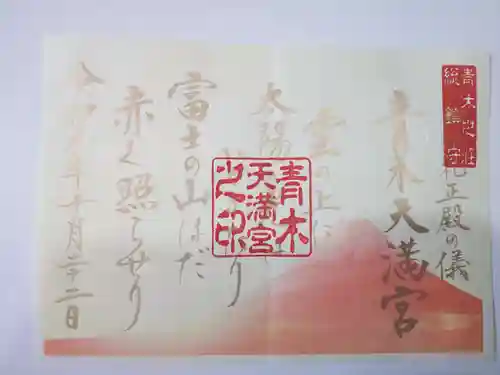 青木之庄
総鎮守
礼正殿の儀
青木天満宮
雲の上に
太陽
り
富士の山はだ
赤く照らせり
令和元年十月二十二日
青木
天満宮
之印